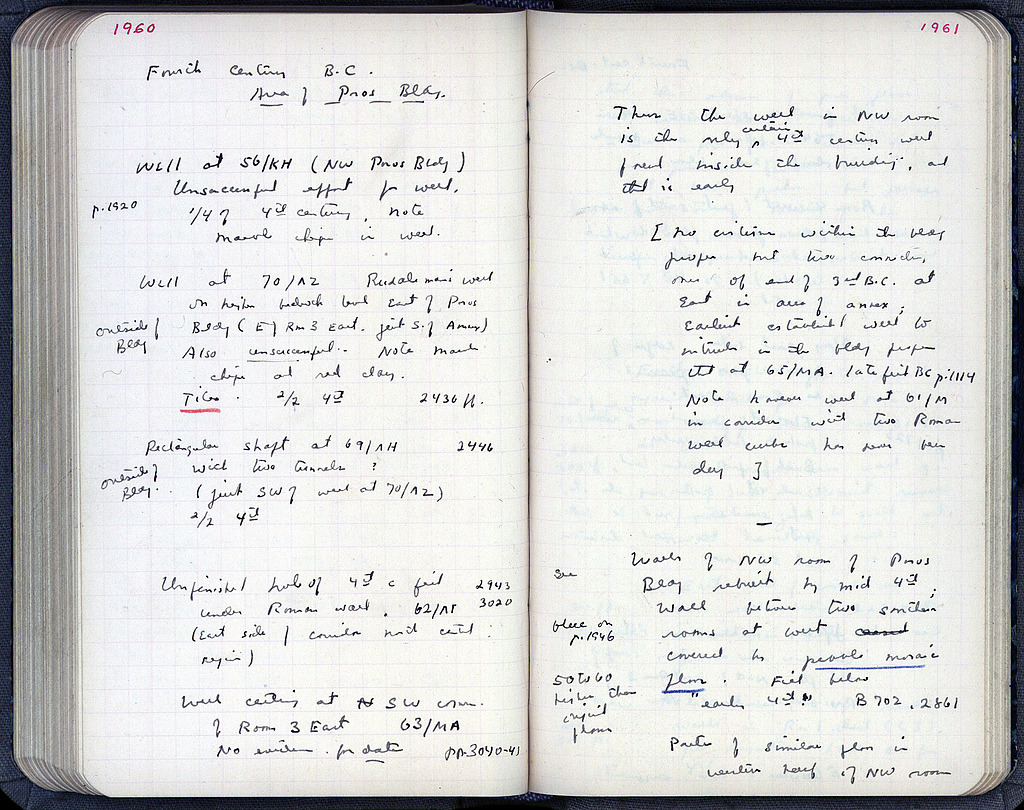 1960
Fourth century B.C.
Area of Pnos Bldg.
Well at 56/KH (NW Pnos Bldg)
Unsuccessful effort for well.
p.1920
1/4 of 4th century. Note
marble chips in well.
Well at 70/ΛΖ
on higher bedrock level East of Pnos
outside of
Bldg
Bldg (E of Rm 3 East. just S. of Annex)
Also unsuccessful. Note marble
chips at red clay.
Tiles. 2/2 4th 2436 ff.
Rectangular shaft at 69/ΛΗ 2446
outside of
Bldg.
with two tunnels?
(just SW of well at 70/ΛΖ)
2/2 4th
Unfinished hole of 4th c fill 2943
under Roman wall. 62/ 3020
(East side of corridor
region)
Well cutting at SW corner
of Room 3 East 63/MA
No evidence for date pp.3040-41
1961
Thus the well in NW room
is the only certain 4th century well
found inside the building, and
that is early
[No cistern within the bldg
proper but two connecting
ones of end of 3rd B.C. at
East in area of annex;
Earliest established well to
intrude in the bldg proper
at 65/MA. late first BC p.1114
Note however well at 61/M
in corridor with two Roman
well curbs has never been
dug]
—
See
Walls of NW room of Pnos
Bldg rebuilt by mid 4th;
Wall between two smaller
blue on
p.1946
rooms at west
covered by pebble mosaic
50 to 60
higher than
original
floors
floor. Fill below
"early 4th" B 702, 2861
Parts of similar floor in
western half of NW room